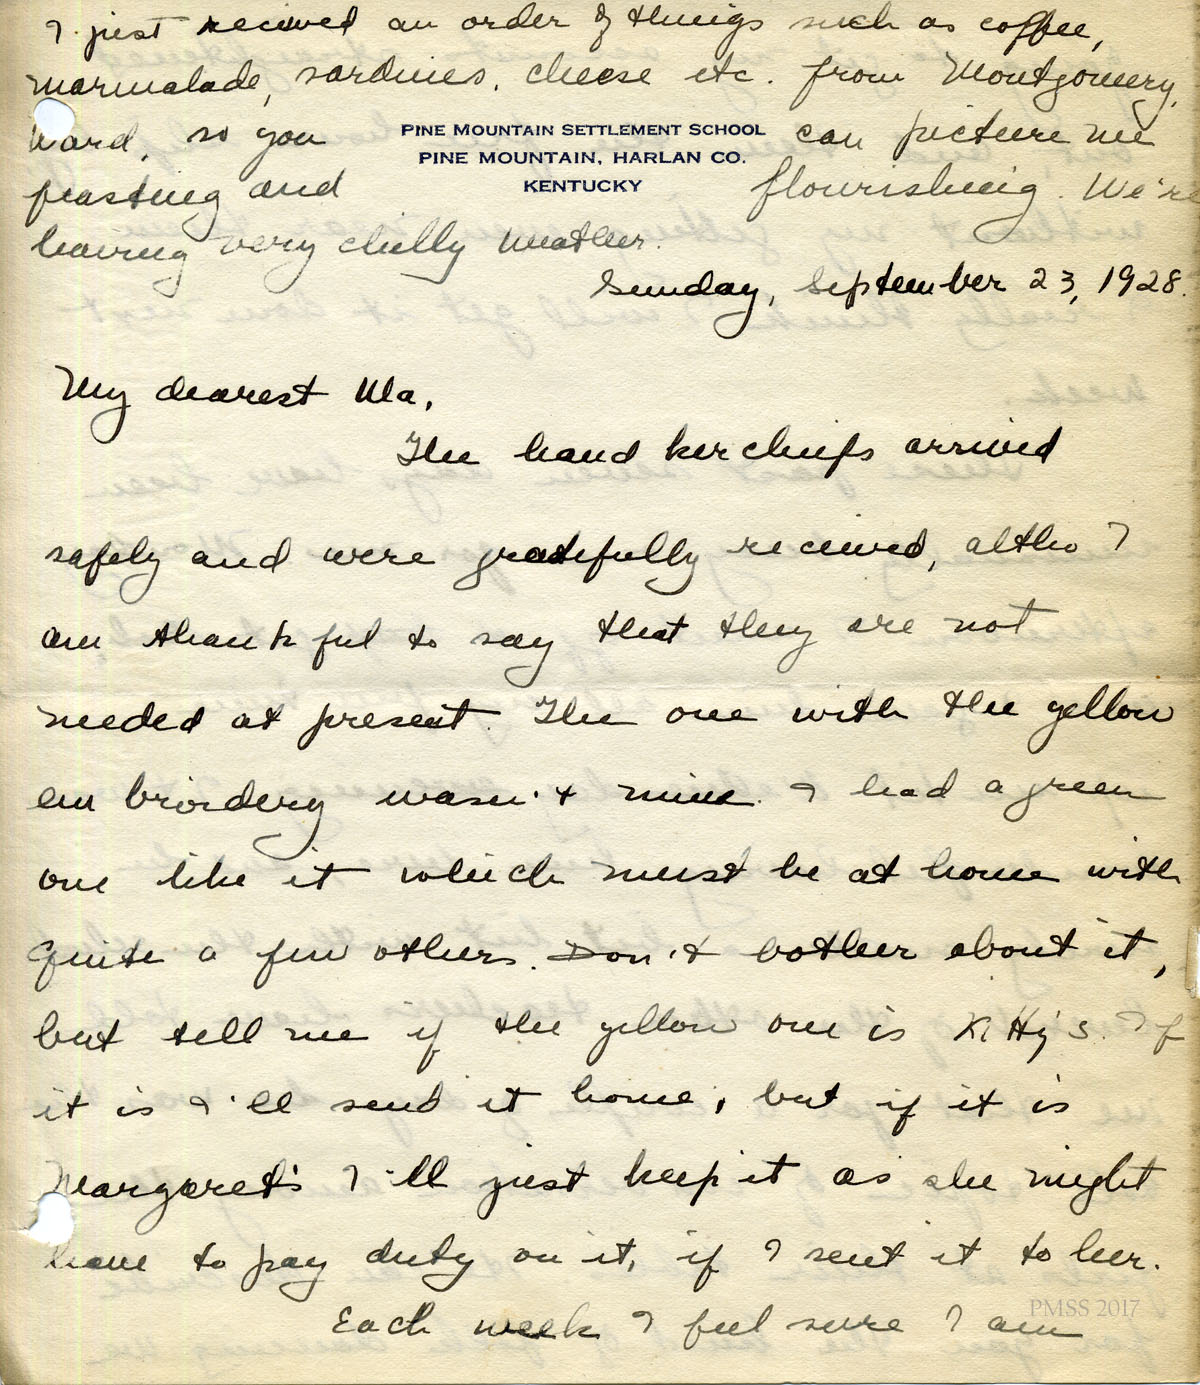 I just received an order of things such as coffee,
marmalade, sardines, cheese etc. from Montgomery,
Ward, so you can picture me
PINE MOUNTAIN SETTLEMENT SCHOOL
PINE MOUNTAIN, HARLAN CO.
KENTUCKY
feasting and flourishing. We're
having very chilly weather.
Sunday, September 23, 1928.
My dearest Ma,
The handkerchiefs arrived
safely and were gratefully received, altho I
am thankful to say that they are not
needed at present. The one with the yellow
embroidery wasn't mine. I had a green
one like it which must be at home with
quite a few others. Don't bother about it,
but tell me if the yellow one is Kitty's. If
it is I'll send it home, but if it is
Margaret's I'll just keep it as she might
have to pay duty on it, if I sent it to her.
Each week I feel sure I am
PMSS 2017